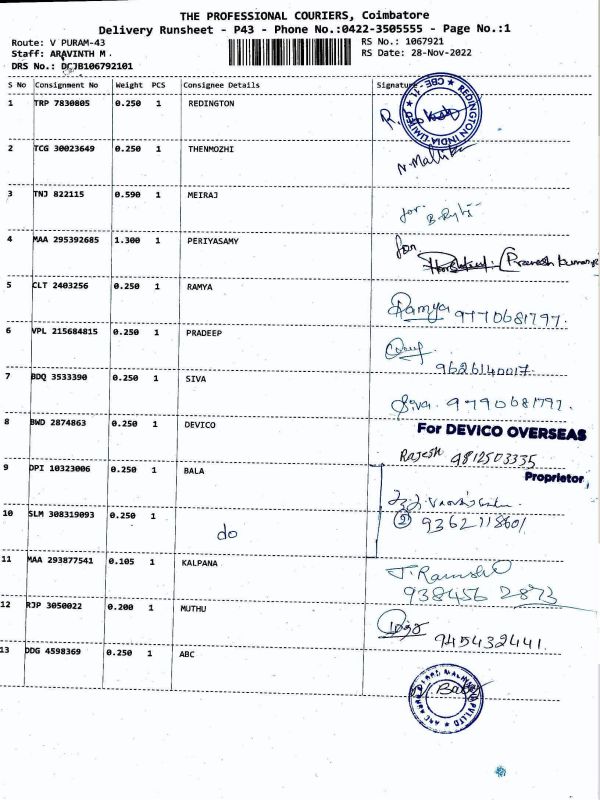 THE PROFESSIONAL COURIERS, Coimbatore
Delivery Runsheet - P43 - Phone No.:0422-3505555 - Page No.:1
Route: V PURAM-43
RS No.: 1067921
Staff: ARAVINTH M
RS Date: 28-Nov-2022
DRS No.: DCJB106792101
S No Consignment No Weight PCS Consignee Details Signature
CBE - 11 ★ REDINGTON INDIA LIMITED ★
1 TRP 7830805 0.250 1 REDINGTON R.
2 TCG 30023649 0.250 1 THENMOZHI
3 TNJ 822115 0.590 1 MEIRAJ for
4 MAA 295392685 1.300 1 PERIYASAMY for
5 CLT 2403256 0.250 1 RAMYA Ramya 9790681797.
6 VPL 215684815 0.250 1 PRADEEP
9626140017.
7 BDQ 3533390 0.250 1 SIVA Siva. 9790681797.
8 BWD 2874863 0.250 1 DEVICO For DEVICO OVERSEAS
Rajesh 9812503335
Proprietor
9 DPI 10323006 0.250 1 BALA
10 SLM 308319093 0.250 1 do
② 9362118601
11 MAA 293877541 0.105 1 KALPANA
938456 2873
12 RJP 3050022 0.200 1 MUTHU
945432441.
13 DDG 4598369 0.250 1 ABC